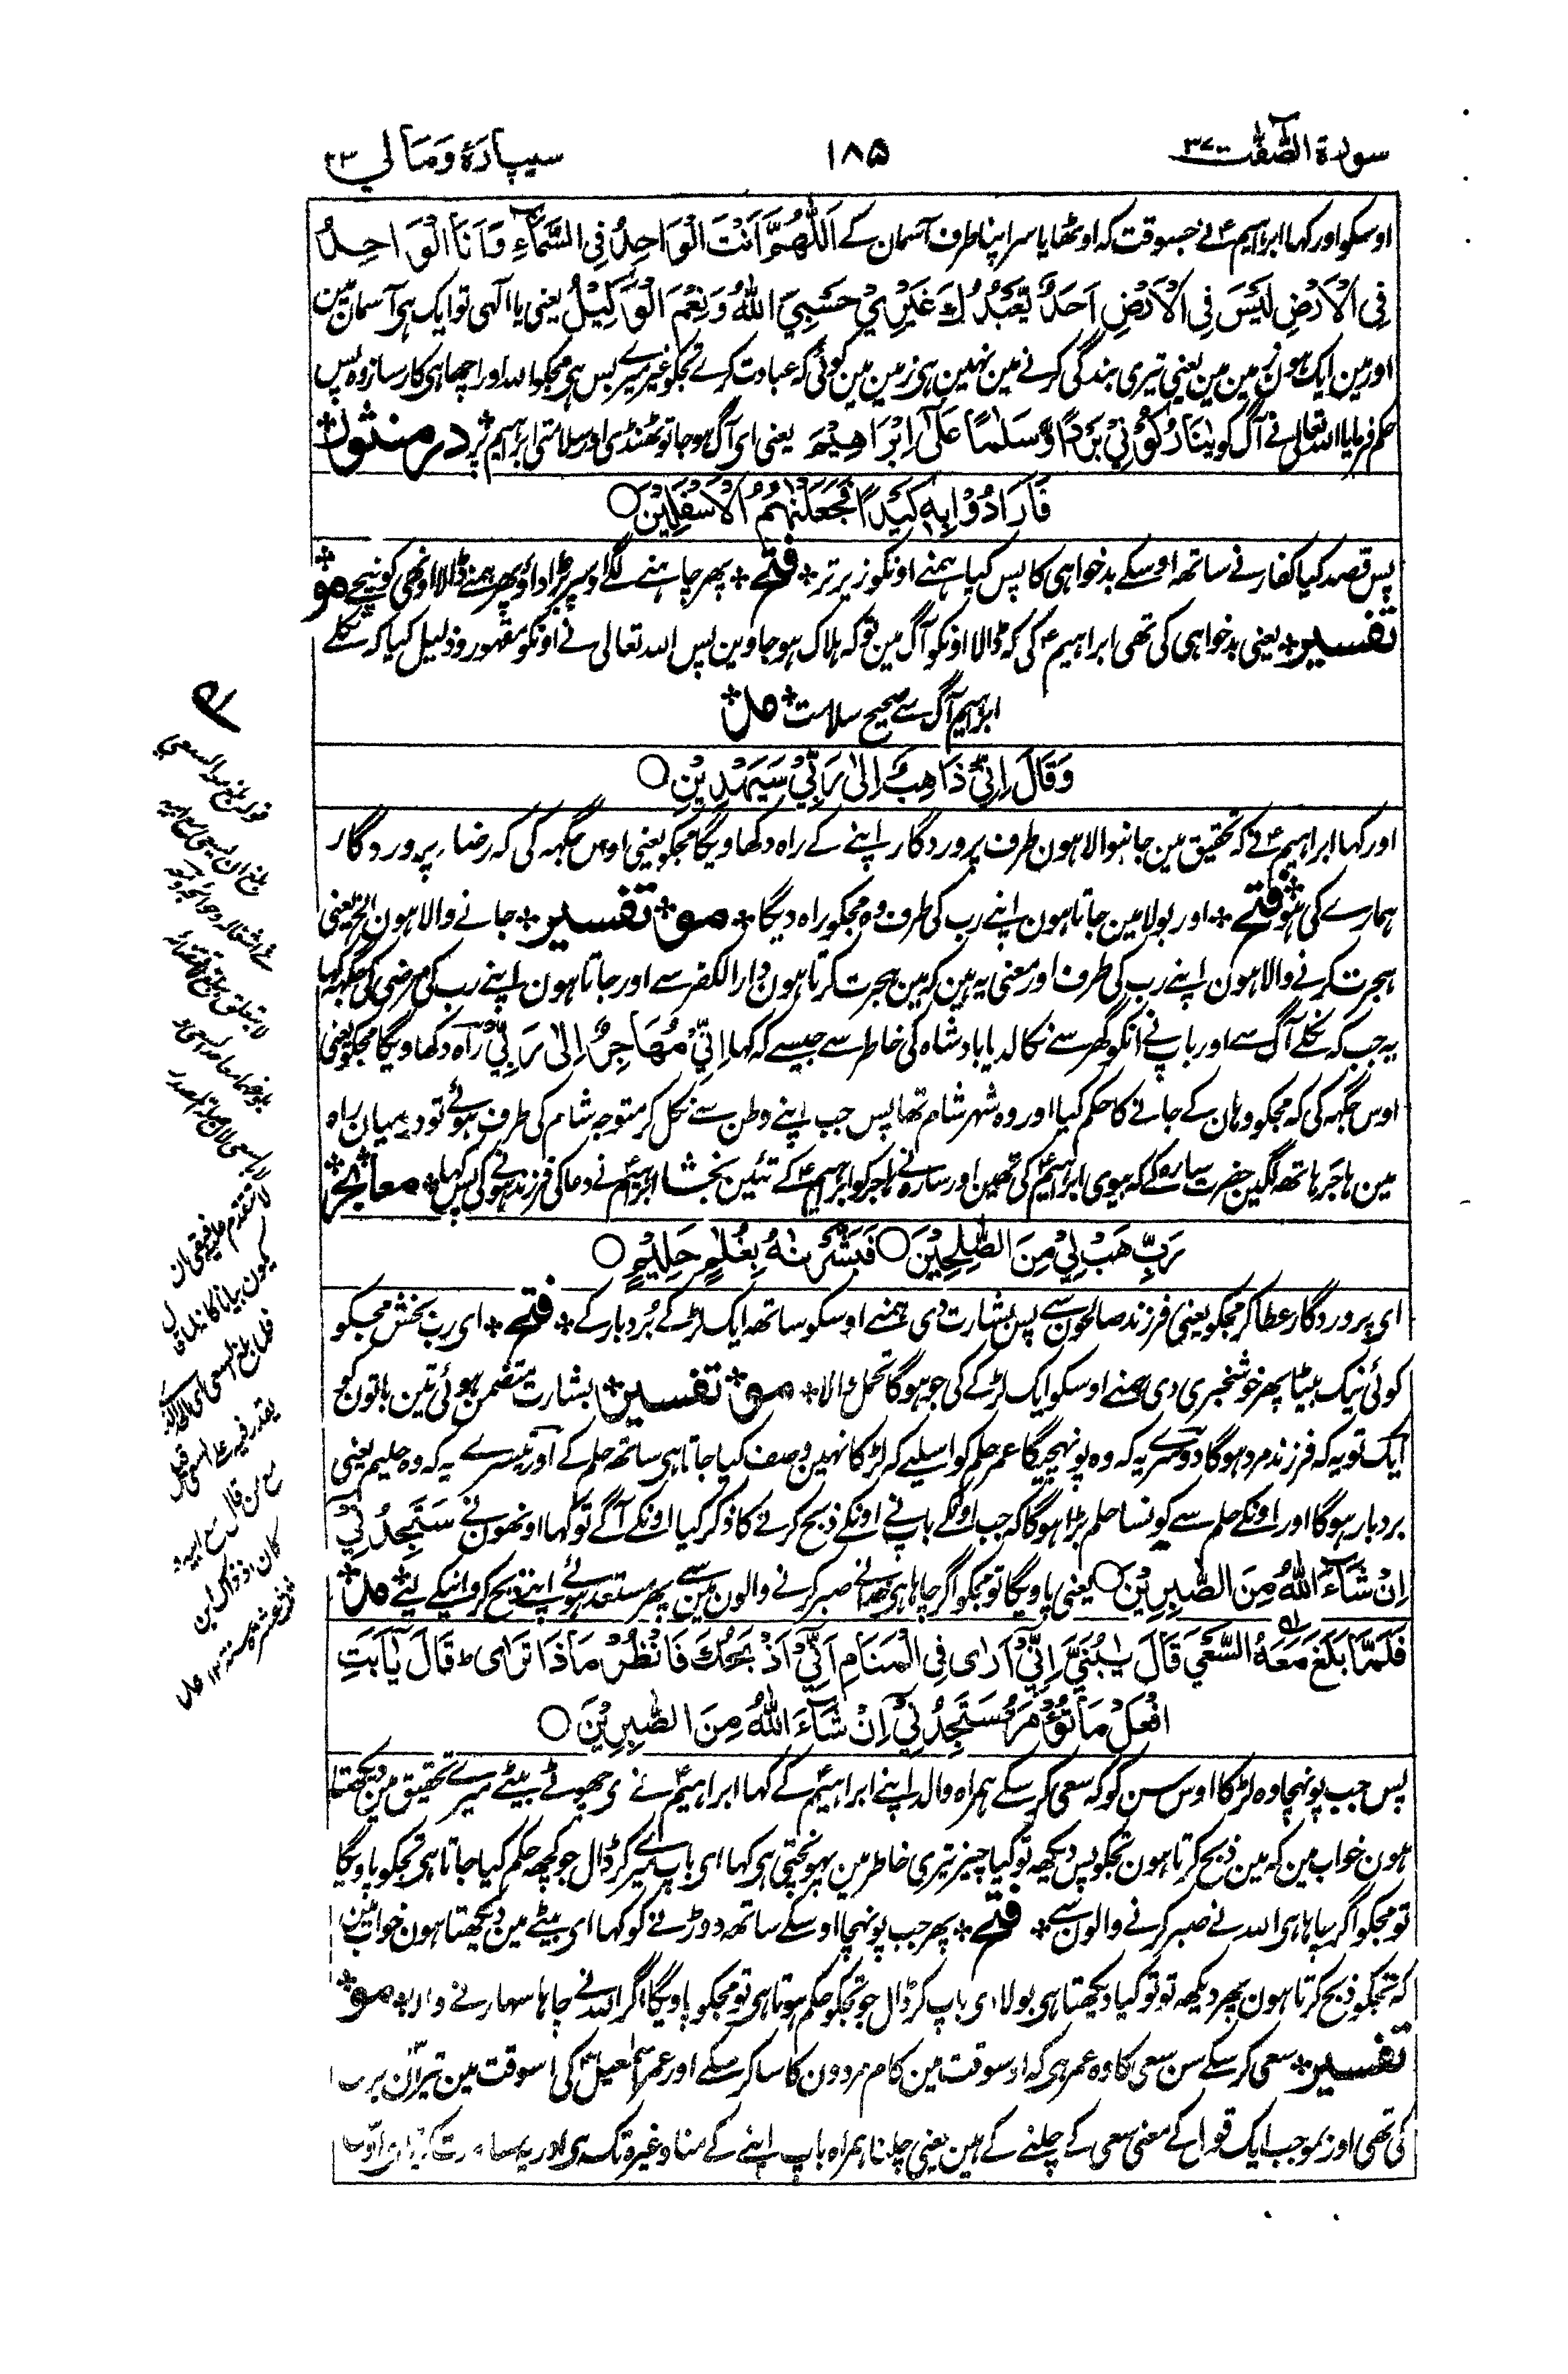 سورۃ الصّٰفّٰت ۳۷
۱۸۵
سیپارۂ ومالی ۲۳
اوسکو اور کہا ابراہیم ؑ نے جسوقت کہ اوٹھایا سر اپنا طرف آسمان کے اَللّٰهُمَّ اَنْتَ الْوَاحِدُ فِی السَّمَآءِ وَاَنَا الْوَاحِدُ
فِی الْاَرْضِ لَیْسَ فِی الْاَرْضِ اَحَدٌ یَّعْبُدُكَ غَیْرِیْ حَسْبِیَ اللّٰهُ وَنِعْمَ الْوَكِیْلُ یعنی یا الٰہی تو ایک ہی آسمان مین
اور مین ایک ہون زمین مین یعنی تیری بندگی کرنے مین نہین ہی زمین مین کوئی کہ عبادت کرے تجکو غیر میرے بس ہی مجکو اللہ اور اچھا ہی کارساز وہ پس
حکم فرمایا اللہ تعالی نے آگ کو یٰنَارُ كُوْنِیْ بَرْدًا وَّسَلٰمًا عَلٰٓی اِبْرَاهِیْمَ یعنی ای آگ ہوجا تو ٹھنڈی اور سلامتی ابراہیم پر * درمنثور *
فَاَرَادُوْا بِهٖ كَیْدًا فَجَعَلْنٰهُمُ الْاَسْفَلِیْنَ ○
پس قصد کیا کفار نے ساتھ اوسکے بدخواہی کا پس کیا ہمنے اونکو زیرتر * فتح * پھر چاہنے لگے اوسپر بُرا داؤ پھر ہمنے ڈالا اونہی کو نیچے * مو *
تفسیر * یعنی بدخواہی کی تھی ابراہیم ؑ کی کہ ڈالا اونکو آگ مین تو کہ ہلاک ہوجاوین پس اللہ تعالی نے اونکو مقہور و ذلیل کیا کہ نکلے
ابراہیم آگ سے صحیح سلامت * مل *
وَقَالَ اِنِّیْ ذَاهِبٌ اِلٰی رَبِّیْ سَیَهْدِیْنِ ○
اور کہا ابراہیم ؑ نے کہ تحقیق مین جانیوالا ہون طرف پروردگار اپنے کے راہ دکھاویگا مجکو یعنی اوس جگہہ کی کہ رضاء پروردگار
ہمارے کی ہو * فتح * اور بولا مین جاتا ہون اپنے رب کی طرف وہ مجکو راہ دیگا * مو * تفسیر * جانے والا ہون الخ یعنی
ہجرت کرنے والا ہون اپنے رب کی طرف اور معنی یہ ہین کہ مین ہجرت کرتا ہون دارالکفر سے اور جاتا ہون اپنے رب کی مرضی کی جگہہ کہا
یہ جب کہ نکلے آگ سے اور باپ نے انکو گھر سے نکالدیا بادشاہ کی خاطر سے جیسے کہ کہا اِنِّیْ مُهَاجِرٌ اِلٰی رَبِّیْ راہ دکھاویگا مجکو یعنی
اوس جگہہ کی کہ مجکو وہان کے جانے کا حکم کیا اور وہ شہر شام تھا پس جب اپنے وطن سے نکل کر متوجہ شام کی طرف ہوئے تو درمیان راہ
مین ہاجَر ہاتھ لگین حضرت سارہ کے کہ بیوی ابراہیم ؑ کی تھین اور سارہ نے ہاجر کو ابراہیم ؑ کے تئین بخشا ابراہیم ؑ نے دعا کی فرزند ہونے کی پس کہا *
رَبِّ هَبْ لِیْ مِنَ الصّٰلِحِیْنَ ○ فَبَشَّرْنٰهُ بِغُلٰمٍ حَلِیْمٍ ○
ای پروردگار عطا کر مجکو یعنی فرزند صالحون سے پس بشارت دی ہمنے اوسکو ساتھ ایک لڑکے بُردبار کے * فتح * ای رب بخش مجکو
کوئی نیک بیٹا پھر خوشخبری دی ہمنے اوسکو ایک لڑکے کی جو ہوگا تحمل والا * مو * تفسیر * بشارت متضمن ہوئی تین باتون کو
ایک تو یہ کہ فرزند مرد ہوگا دوسرے یہ کہ وہ پونہچیگا عمر حلم کو اسلیے کہ لڑکا نہین وصف کیا جاتا ہی ساتھ حلم کے اور تیسرے یہ کہ وہ حلیم یعنی
بردبار ہوگا اور اونکے حلم سے کونسا حلم بڑا ہوگا کہ جب اونکے باپ نے اونکے ذبح کرنے کا ذکر کیا اونکے آگے تو کہا اونھون نے سَتَجِدُنِیْ
اِنْ شَآءَ اللّٰهُ مِنَ الصّٰبِرِیْنَ ○ یعنی پاویگا تو مجکو اگر چاہا ہی خدا نے صبر کرنے والون مین سے پھر مستعد ہوئے اپنے ذبح کروانیکے لیے * مل *
فَلَمَّا بَلَغَ مَعَهُ السَّعْیَ قَالَ یٰبُنَیَّ اِنِّیْٓ اَرٰی فِی الْمَنَامِ اَنِّیْٓ اَذْبَحُكَ فَانْظُرْ مَاذَا تَرٰی ط قَالَ یٰٓاَبَتِ
افْعَلْ مَا تُؤْمَرُ سَتَجِدُنِیْٓ اِنْ شَآءَ اللّٰهُ مِنَ الصّٰبِرِیْنَ ○
پس جب پونہچا وہ لڑکا اوس سن کو کہ سعی کرسکے ہمراہ والد اپنے ابراہیم ؑ کے کہا ابراہیم ؑ نے ای چھوٹے بیٹے میرے تحقیق مین دیکھتا
ہون خواب مین کہ مین ذبح کرتا ہون تجکو پس دیکھ تو کیا چیز تیری خاطر مین پہونچتی ہی کہا ای باپ میرے کر ڈال جو کچھ حکم کیا جاتا ہی تجکو پاویگا
تو مجکو اگر چاہا ہی اللہ نے صبر کرنے والون سے * فتح * پھر جب پونہچا اوسکے ساتھ دوڑنے کو کہا ای بیٹے مین دیکھتا ہون خواب مین
کہ تجکو ذبح کرتا ہون پھر دیکھ تو تو کیا دیکھتا ہی بولا ای باپ کر ڈال جو تجکو حکم ہوتا ہی تو مجکو پاویگا اگر اللہ نے چاہا سہارنے والا * مو *
تفسیر * سعی کرسکے سن سعی کا وہ عمر ہی کہ اوسوقت مین کام مردون کا سا کرسکے اور عمر اسمٰعیل ؑ کی اسوقت مین تیران برس
کی تھی اور بموجب ایک قول کے معنی سعی کے چلنے کے ہین یعنی چلنا ہمراہ باپ اپنے کے منا وغیرہ تک ہی اور یہ